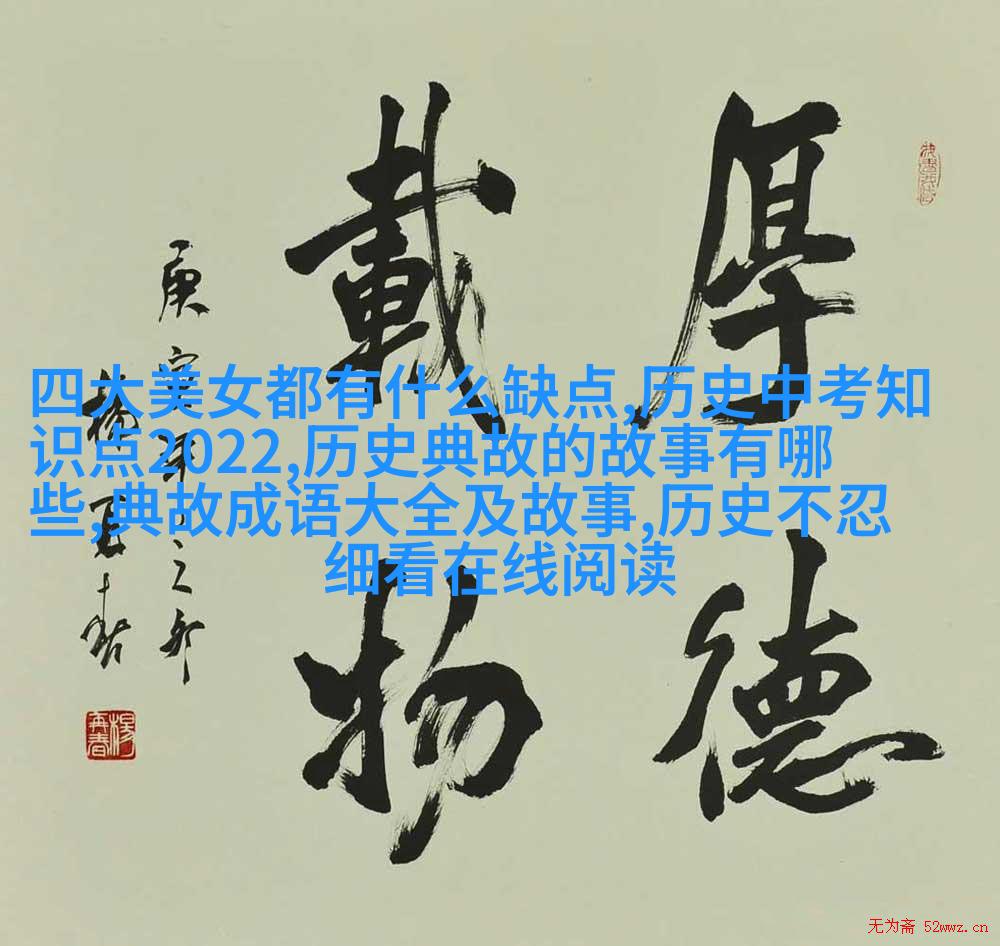 厚德
載物
庚寅年之卯
楊再春
楊再春
四大美女都有什么缺点,历史中考知
识点2022,历史典故的故事有哪
些,典故成语大全及故事,历史不忍
细看在线阅读
无为斋 52wwz.cn